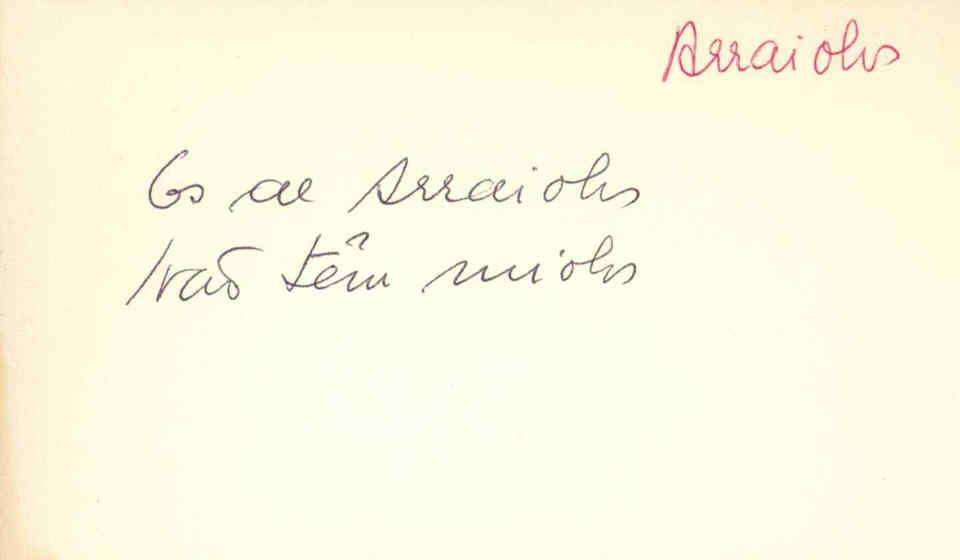 Arraiolos
Os de Arraiolos
Não têm miolos